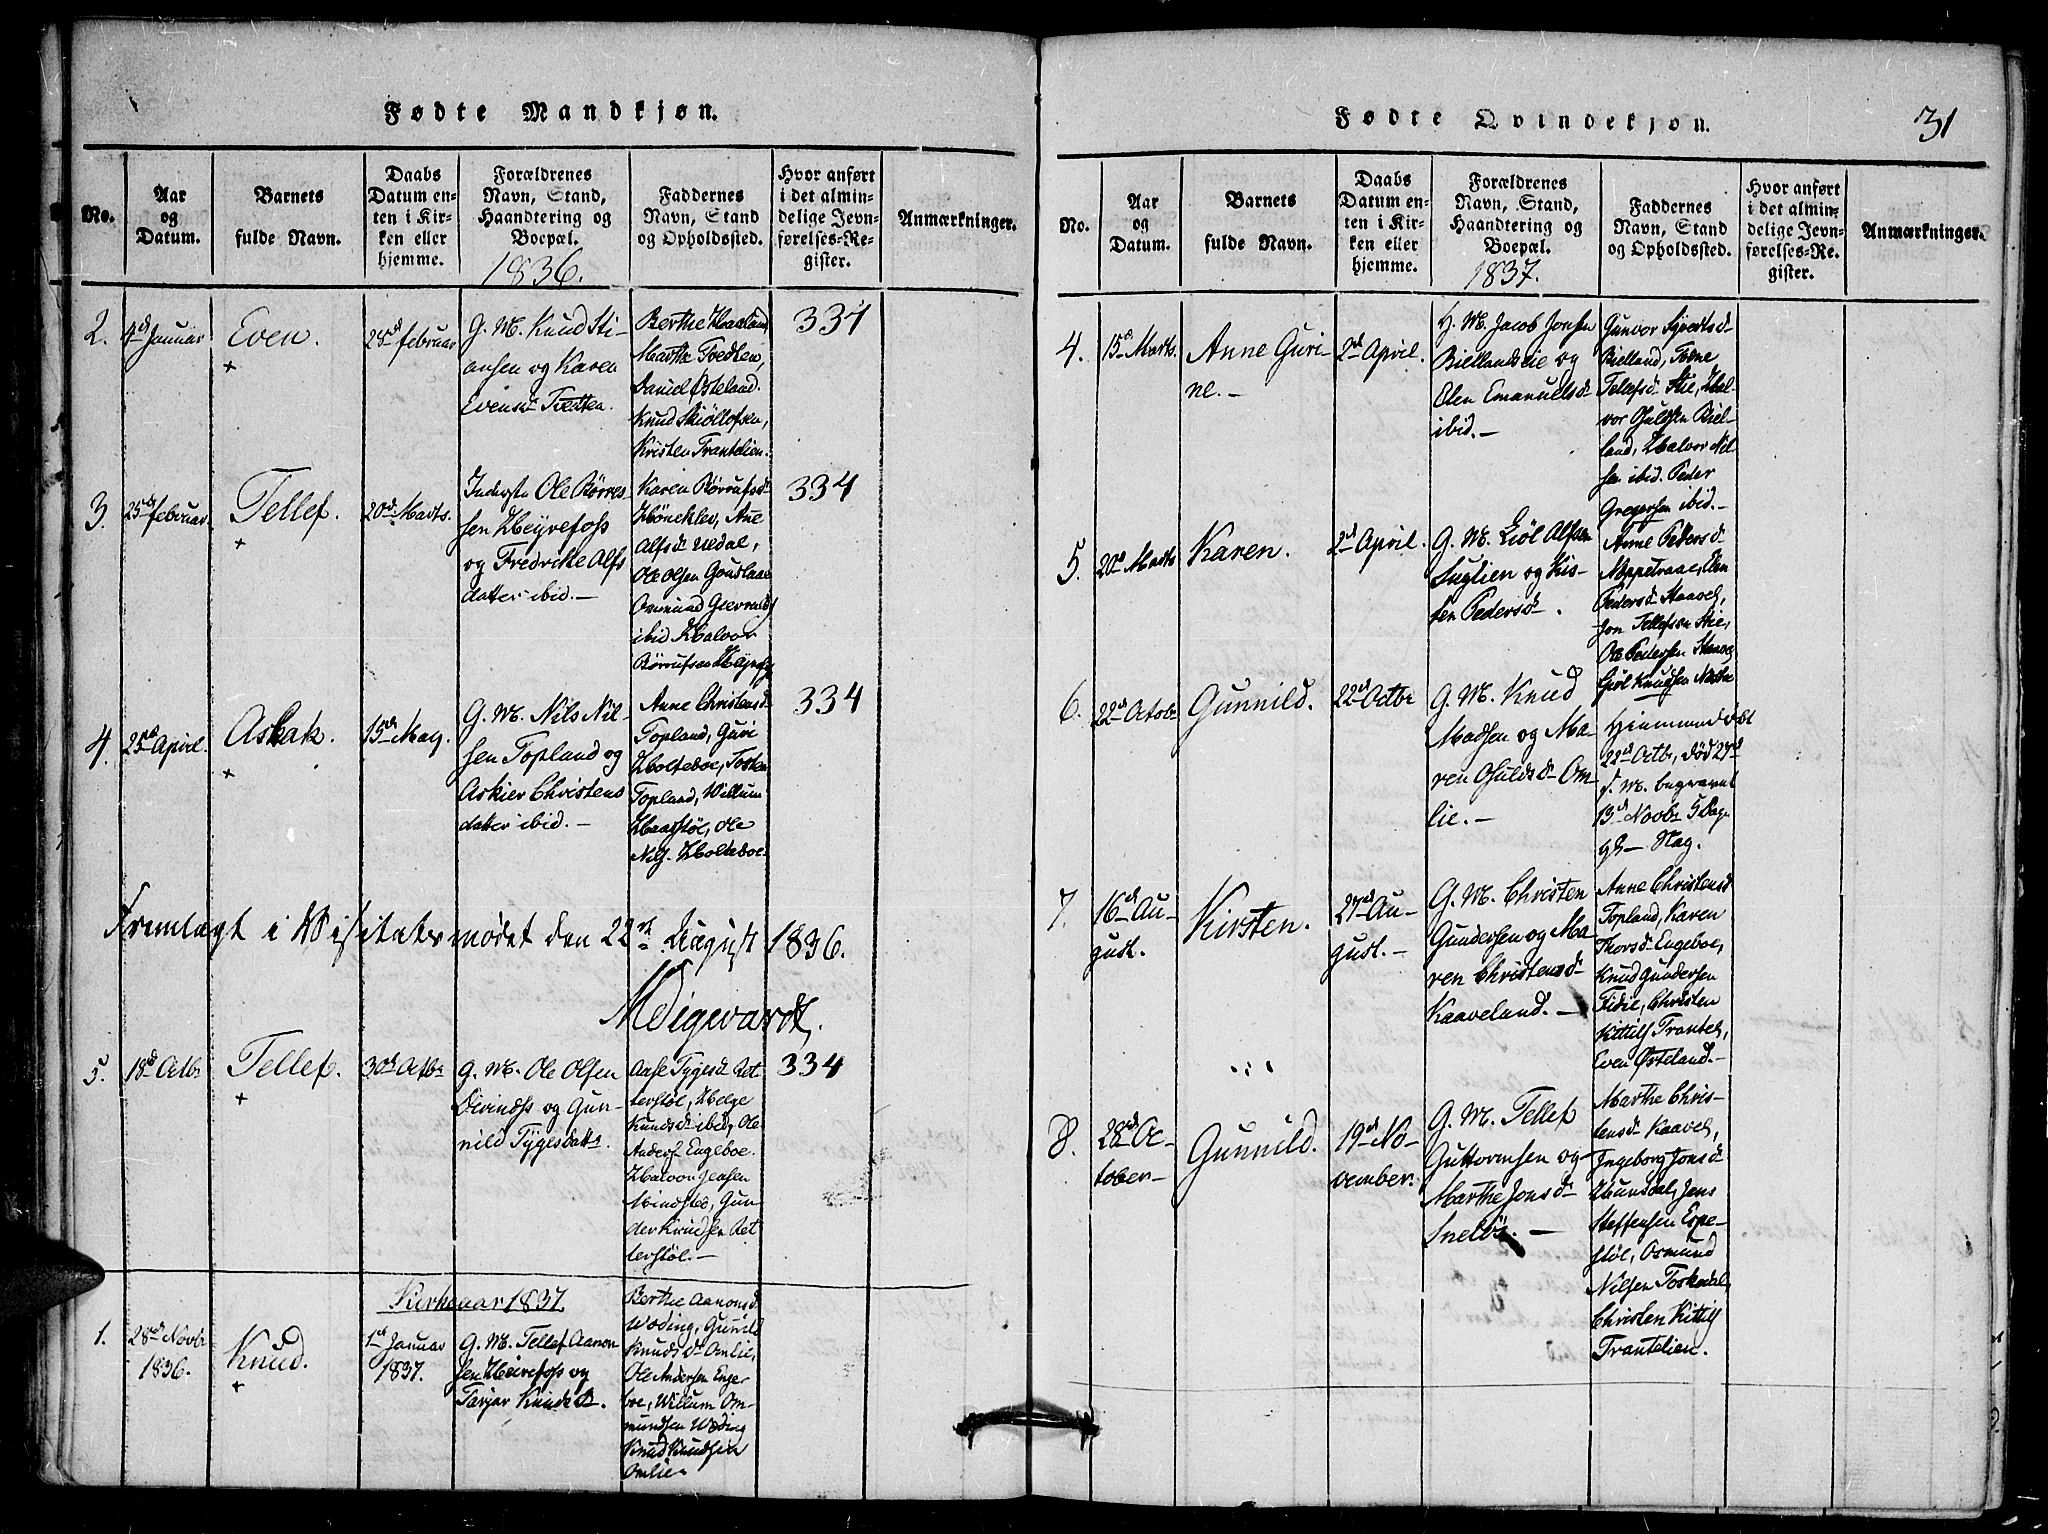 Fødte Mandkjøn.
No.
Aar
og
Datum.
Barnets
fulde Navn.
Daabs
Datum en-
ten i Kir-
ken eller
hjemme.
Forældrenes
Navn, Stand,
Haandtering og
Boepæl.
1836.
Faddernes
Navn, Stand
og Opholdssted.
Hvor anført
i det almin-
delige Jevn-
førelses-Re-
gister.
Anmærkninger.
2.
4de Januar
Even.
+
28de februar
G. M. Knud Sti-
ansen og Karen
Evensdr Tvedten.
Berthe Haaland,
Marthe Tvedten,
Daniel Østeland.
Knud Skiøllofsen,
Kristen Trantelien.
334
3.
25de februar
Tellef.
+
20de Marts.
Inderste Ole Børres
sen Heyrefoss
og Fredrikke Alfs
datter ibid.—
Karen Børrufsdr
Høneklev, Ane
Alfsdr Uedal,
Ole Olsen
ibid Halvor
Børrufsen
334
4.
25de April.
Aslak.
+
15de May.
G. M. Nils Nil-
sen Topland og
Askier Christens
datter ibid.—
Anne Christensd
Topland, Guri
Holteboe,
Topland, Willum
Haarstøl, Ole
Nils. Holteboe.
334
Fremlagt i Visitatsmødet den 22de August 1836.
5.
18de Octbr
Tellef.
+
30de Octbr
G. M. Ole Olsen
og Gun-
nild Tygesdattr.
Aase Tygesd Ret
terstøl, Helge
Knudsdr ibid, Ole
Anders. Engeboe.
Halvor Jensen
Mindstad, Gun-
der Knudsen Ret
terstøl.—
334
Kirkeaar 1837.
1.
28de Novbr
1836.
Knud.
+
1ste Januar
1837.
G. M. Tellef Aanon
sen Heirefoss og
Tarjer Knudsdr.
Berthe Aanonsd.
Woding, Gunild
Knudsdr Omlie,
Ole Andersen Enge
boe, Willum Om-
mundsen Woding
Knud Knudsen
Omlie
Fødte Qvindekjøn.
31
No.
Aar
og
Datum.
Barnets
fulde Navn.
Daabs
Datum en-
ten i Kir-
ken eller
hjemme.
Forældrenes
Navn, Stand,
Haandtering og
Boepæl.
1837.
Faddernes
Navn, Stand
og Opholdssted.
Hvor anført
i det almin-
delige Jevn-
førelses-Re-
gister.
Anmærkninger.
4.
15de Marts.
Anne Guri-
ne.—
2den April.
H. M. Jacob Jonsen
Biellandseie og
Olen Emanuelsdr
ibid.—
Gunvor Syvertsdr
Bielland, Tone
Telefsdr Stie, Hal-
vor Osulfsen Biel-
land, Halvor Nil-
sen ibid. Peder
Gregersen ibid.—
5.
20de Marts
Karen.
2den April.
G. M. Liøl Alfsen
Suglien og Kis-
ten Pedersdr.
Anne Pedersdr
Pedersdr Kaavel,
Jon Tellefsen Stie,
Ole Pedersen Kaavel
Giøl Knudsen
6.
22de Octobr
Gunnild.
22de Octbr
G. M. Knud
Madsen og Ma-
ren Osuldsdr Om-
lie.—
Hjemmedøbt
22de Octbr, død 27de
d. M. begravet
13de Novbr 5 Dage
gl— Hag.
7.
16de Au-
gust.
Kirsten.
27de Au-
gust.—
G. M. Christen
Gundersen og Ma-
ren Christensdr
Kaaveland.—
Anne Christensd
Topland, Karen
Thorsdr Engeboe,
Knud Gundersen
Fidie, Christen
Kittils Trantel,
Even Østeland.—
8.
28de Oc-
tober—
Gunnild.
19de No-
vember.
G. M. Tellef
Guttormsen og
Marthe Jonsdr
Sneløs.—
Marthe Chris-
tensdr Kaavel,
Ingeborg Jonsdr
Hunsdal, Jens
Steffensen Espe-
støl, Osmund
Nilsen Toskedal,
Christen Kittils
Trantelien.